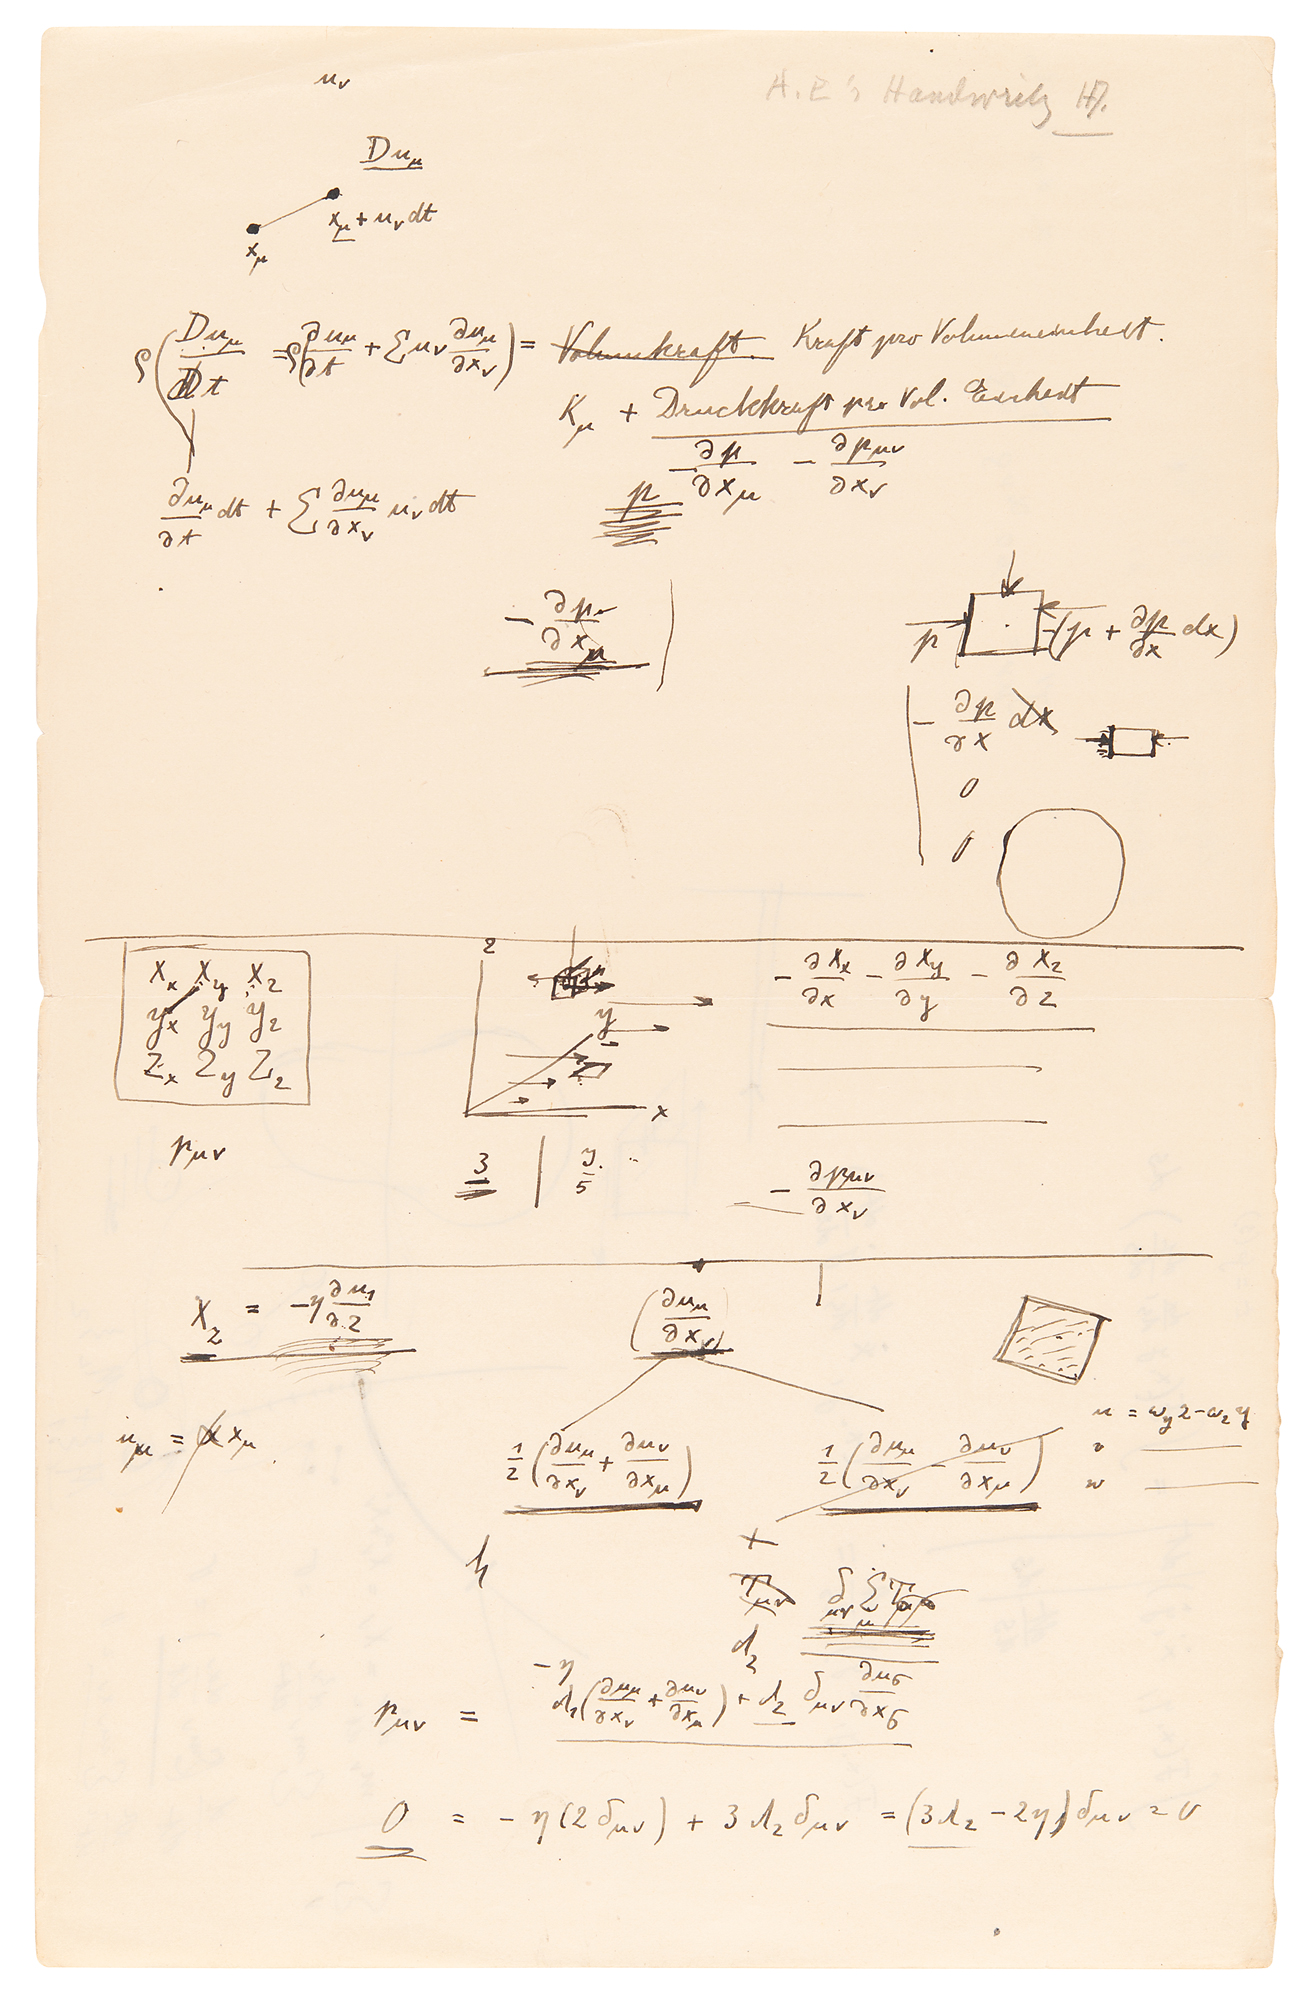 u_ν
A. E's Handwritg
Du_μ
x_μ + u_ν dt
x_μ
ρ(Du_μ/Dt = ρ ∂u_μ/∂t + Σ u_ν ∂u_μ/∂x_ν) = Volumkraft. Kraft pro Volumeneinheit.
K_μ + Druckkraft pro Vol. Einheit
-∂p/∂x_μ - ∂p_μν/∂x_ν
∂u_μ/∂t dt + Σ ∂u_μ/∂x_ν u_ν dt
p
-∂p/∂x_μ
p -(p + ∂p/∂x dx)
-∂p/∂x dx
0
0
X_x X_y X_z
Y_x Y_y Y_z
Z_x Z_y Z_z
z
y
x
-∂X_x/∂x - ∂X_y/∂y - ∂X_z/∂z
p_μν
3 | y/5
-∂p_μν/∂x_ν
X_z = -η ∂u_1/∂z
(∂u_μ/∂x_ν)
u_μ = α x_μ
1/2 (∂u_μ/∂x_ν + ∂u_ν/∂x_μ)
1/2 (∂u_μ/∂x_ν - ∂u_ν/∂x_μ)
u = ω_y z - ω_z y
v
w
+
T_μν δ_μν Σ_μ T_μμ
λ_2
-η
p_μν = λ_1 (∂u_μ/∂x_ν + ∂u_ν/∂x_μ) + λ_2 δ_μν ∂u_σ/∂x_σ
0 = -η(2δ_μν) + 3λ_2 δ_μν = (3λ_2 - 2η) δ_μν = 0